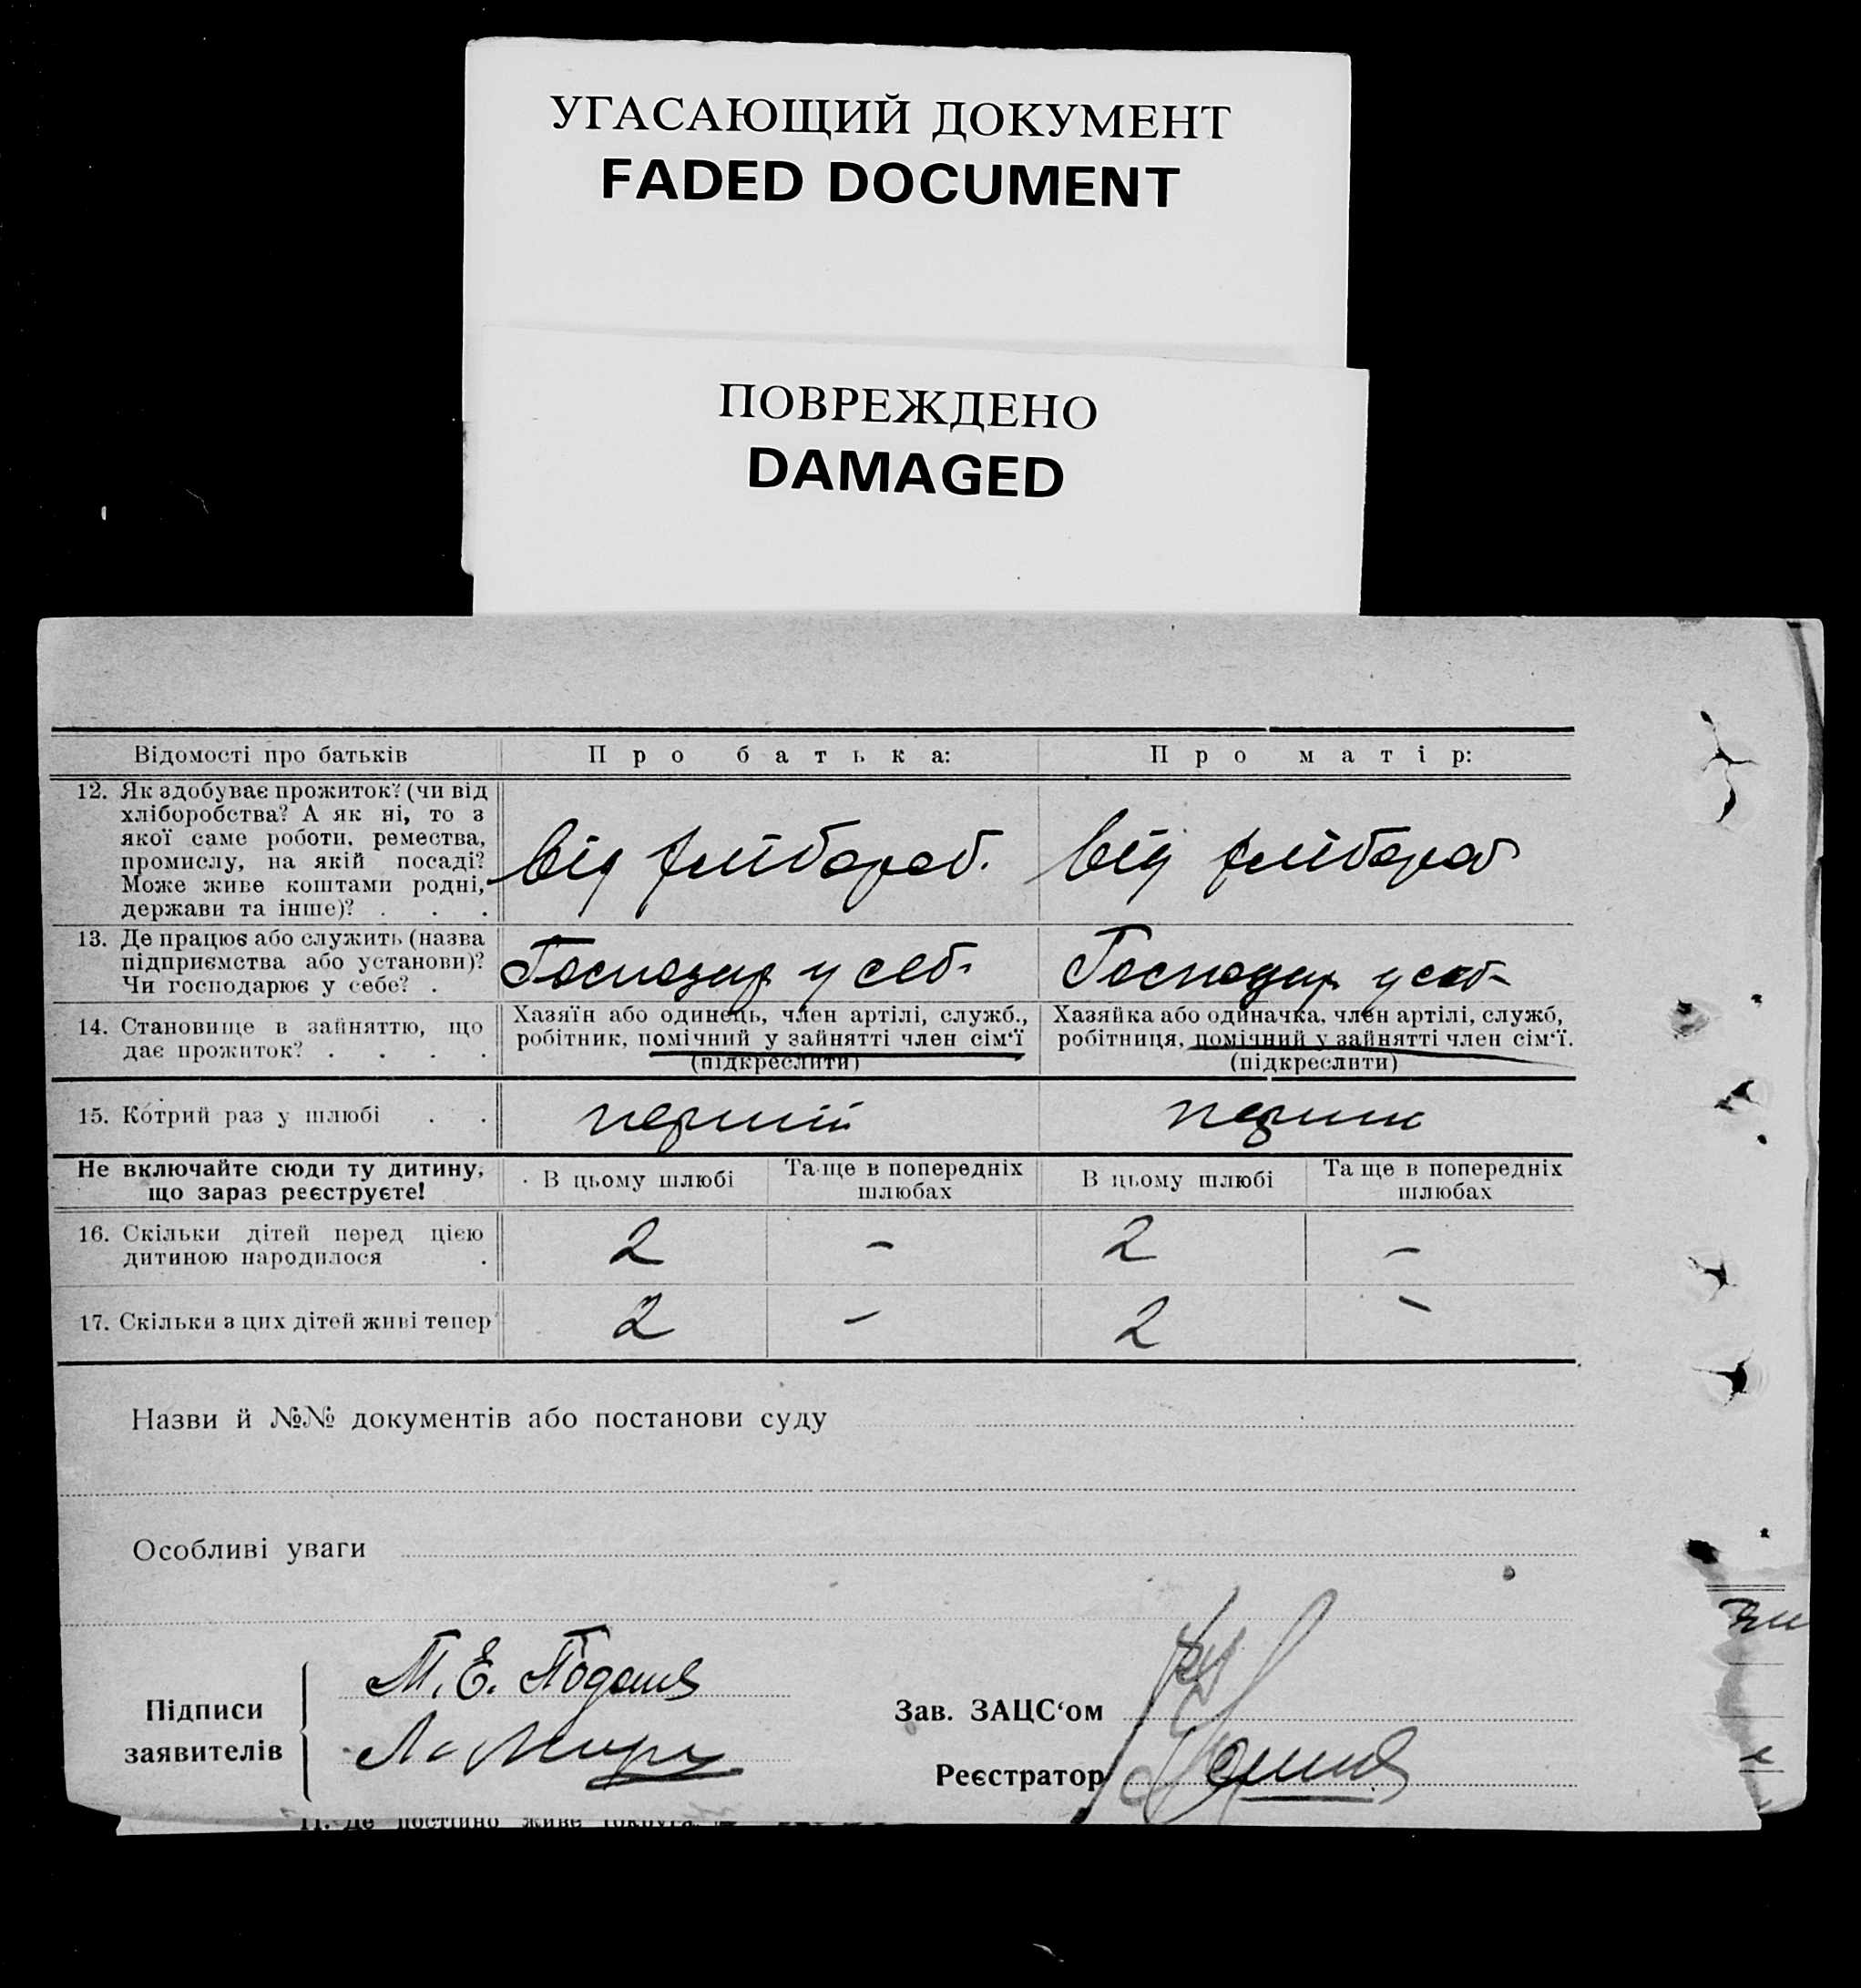 УГАСАЮЩИЙ ДОКУМЕНТ
FADED DOCUMENT
ПОВРЕЖДЕНО
DAMAGED
Відомості про батьків
Про батька:
Про матір:
12. Як здобуває прожиток? (чи від
хліборобства? А як ні, то з
якої саме роботи, ремества,
промислу, на якій посаді?
Може живе коштами родні,
держави та інше)? . . .
від хлібороб.
від хлібороб
13. Де працює або служить (назва
підприємства або установи)?
Чи господарює у себе? .
Господар у себ.
Господар у себ-
14. Становище в зайняттю, що
дає прожиток? . . . .
Хазяїн або одинець, член артілі, служб.,
робітник, помічний у зайнятті член сім'ї
(підкреслити)
Хазяйка або одиначка, член артілі, служб,
робітниця, помічний у зайнятті член сім'ї.
(підкреслити)
15. Котрий раз у шлюбі . .
перший
перши
Не включайте сюди ту дитину,
що зараз реєструєте!
В цьому шлюбі
Та ще в попередніх
шлюбах
В цьому шлюбі
Та ще в попередніх
шлюбах
16. Скільки дітей перед цією
дитиною народилося .
2 - 2 -
17. Скільки з цих дітей живі тепер
2 - 2 -
Назви й №№ документів або постанови суду
Особливі уваги
Підписи
заявителів
М. Е.
Зав. ЗАЦС'ом
Реєстратор
11. Де постійно живе